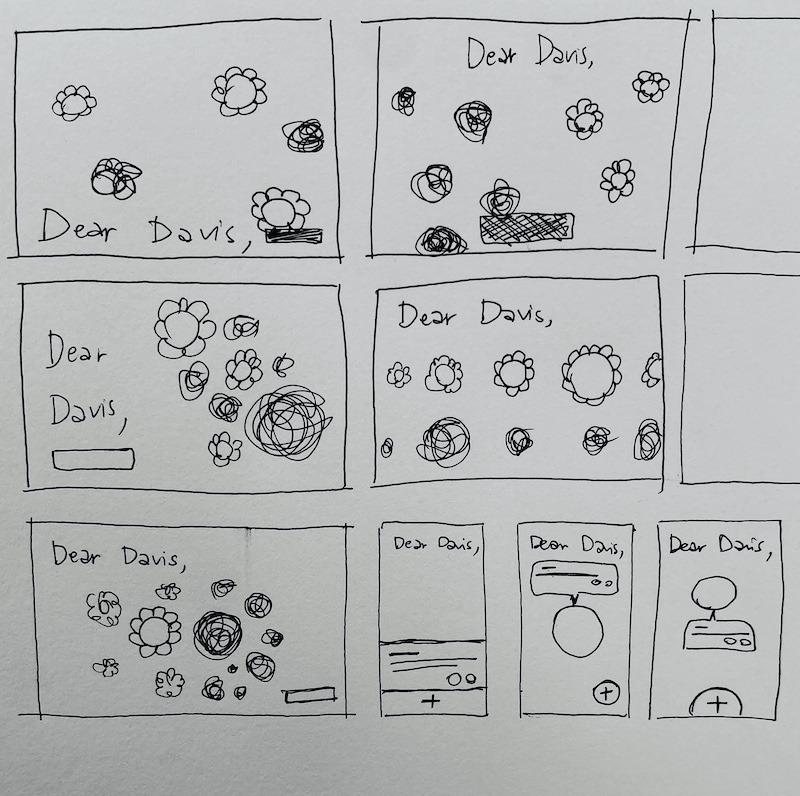 Dear Davis,
Dear Davis,
Dear
Davis,
Dear Davis,
Dear Davis,
Dear Davis,
Dear Davis,
Dear Davis,
+
+
+